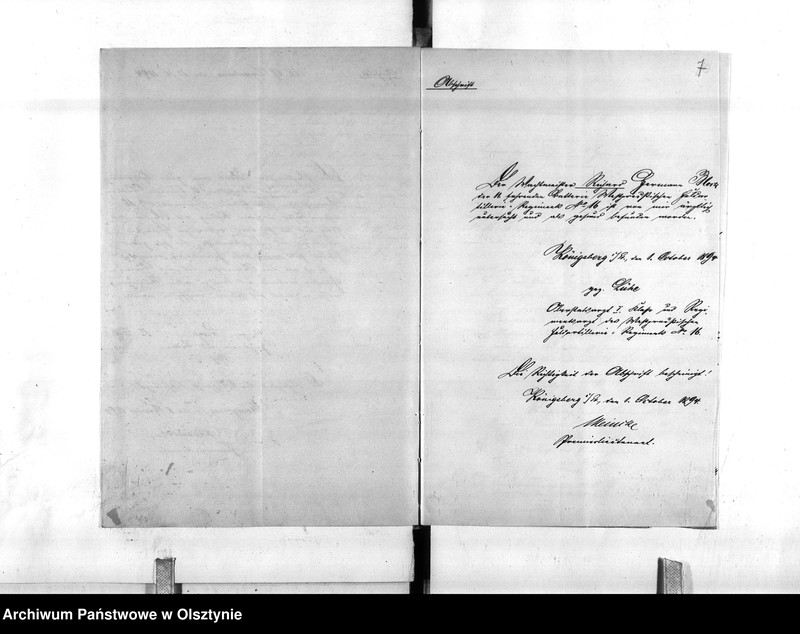 7
Abschrift
Der Wachtmeister Richard Hermann
der 11. fahrenden Batterie Westpreußischen Feldar
tillerie-Regiments No 16 ist von mir ärztlich
untersucht und als gesund befunden worden.
Königsberg i/Pr., den 1. October 1894.
gez. Lühe
Oberstabsarzt I. Klasse und Regi
mentsarzt des Westpreußischen
Feldartillerie-Regiments No 16.
Die Richtigkeit der Abschrift bescheinigt!
Königsberg i/Pr., den 1. October 1894.
Premierlieutenant.
Archiwum Państwowe w Olsztynie